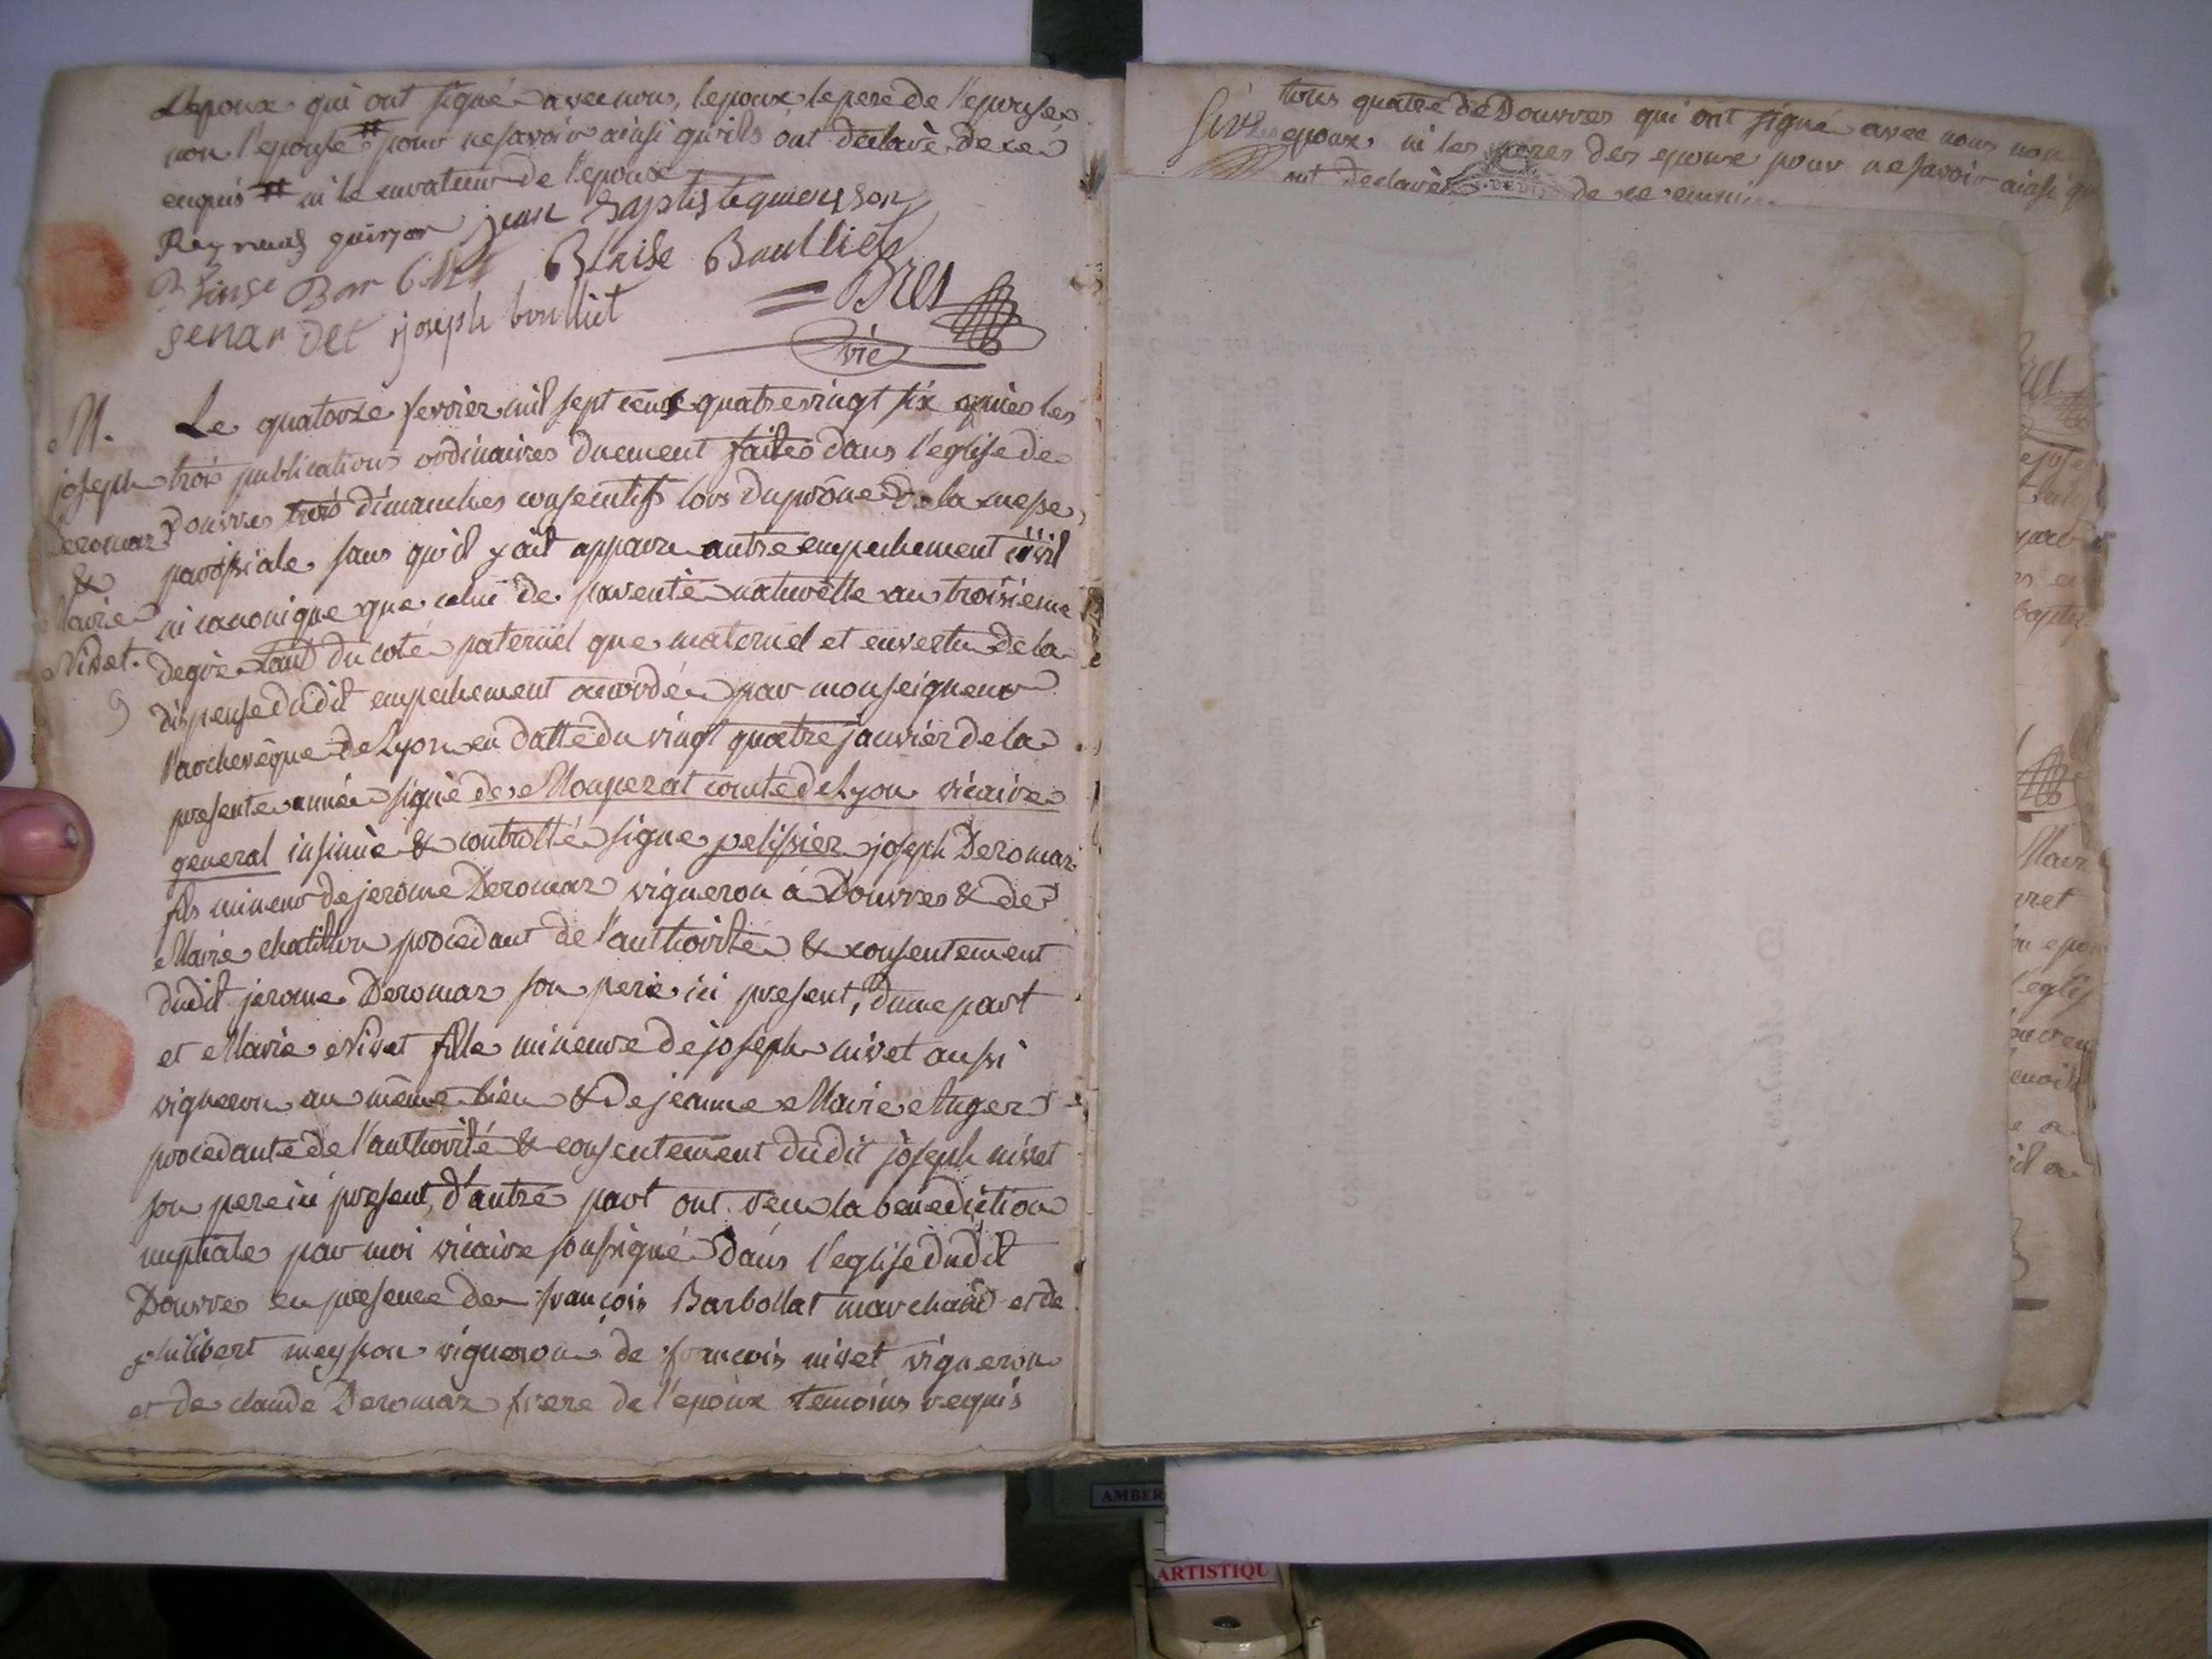 L'epoux qui ont signé avec nous, l'epoux le pere de l'epouse
non l'epouse # pour ne savoir ainsi qu'ils ont declaré de ce
enquis # ni le curateur de l'epoux
jean Baptiste
Blaise Boullié
Bres
genardet joseph boulliet
vic
M.
joseph
Deromaz
&
Marie
Nivet.
9
Le quatorze fevrier mil sept cens quatrevingt six après les
trois publications ordinaires duement faites dans l'eglise de
Douvres trois dimanches consecutifs lors du prône de la messe
paroissiale sans qu'il y ait apparu autre empechement civil
ni canonique que celui de parenté naturelle au troisieme
degré tant du coté paternel que maternel et en vertu de la
dispense dudit empechement accordée par monseigneur
l'archevêque de Lyon en datte du vingt quatre janvier de la
presente année signé de Monperat comte de Lyon vicaire
general insinué & controllé signe pelissier joseph Deromaz
fils mineur de jerome Deromaz vigneron à Douvres & de
Marie chatillon procedant de l'authorité & consentement
dudit jerome Deromaz son pere ici present, d'une part
et Marie Nivet fille mineure de joseph nivet aussi
vigneron au même lieu & de jeanne Marie Auger
procedante de l'authorité & consentement dudit joseph nivet
son pere ici present, d'autre part ont reçu la benediction
nuptiale par moi vicaire soussigné dans l'eglise dudit
Douvres en presence de françois Barbollat marchand et de
philibert meysson vigneron de francois nivet vigneron
et de claude Deromaz frere de l'epoux temoins requis
tous quatre de Douvres qui ont signé avec nous non
les epoux ni les peres des epoux pour ne savoir ainsi qu
ont declaré de ce enquis.
AMBER
ARTISTIQU